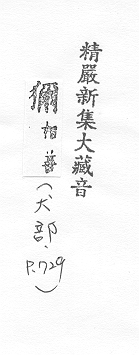 精嚴新集大藏音
獮
(犬部、P.729)